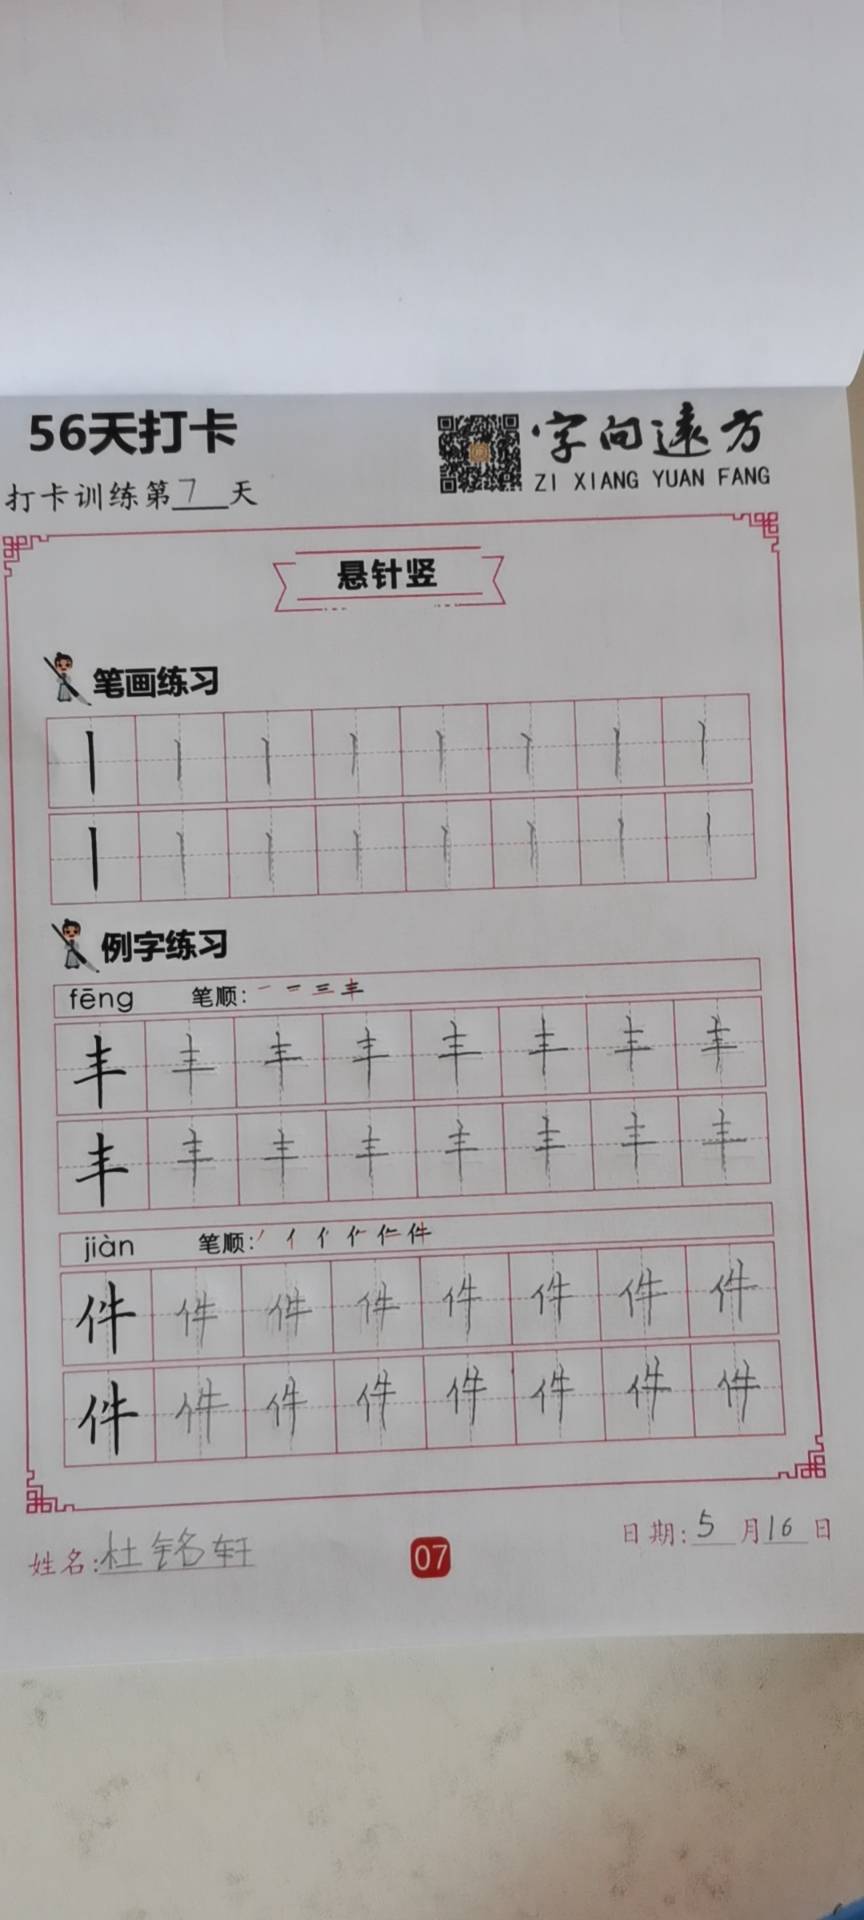 56天打卡
字向远方
ZI XIANG YUAN FANG
打卡训练第7天
悬针竖
笔画练习
丨丨丨丨丨丨丨丨
丨丨丨丨丨丨丨丨
例字练习
fēng 笔顺: 一 二 三 丰
丰丰丰丰丰丰丰丰
丰丰丰丰丰丰丰丰
jiàn 笔顺: 件
件件件件件件件件
件件件件件件件件
姓名:杜铭轩
07
日期:5月16日